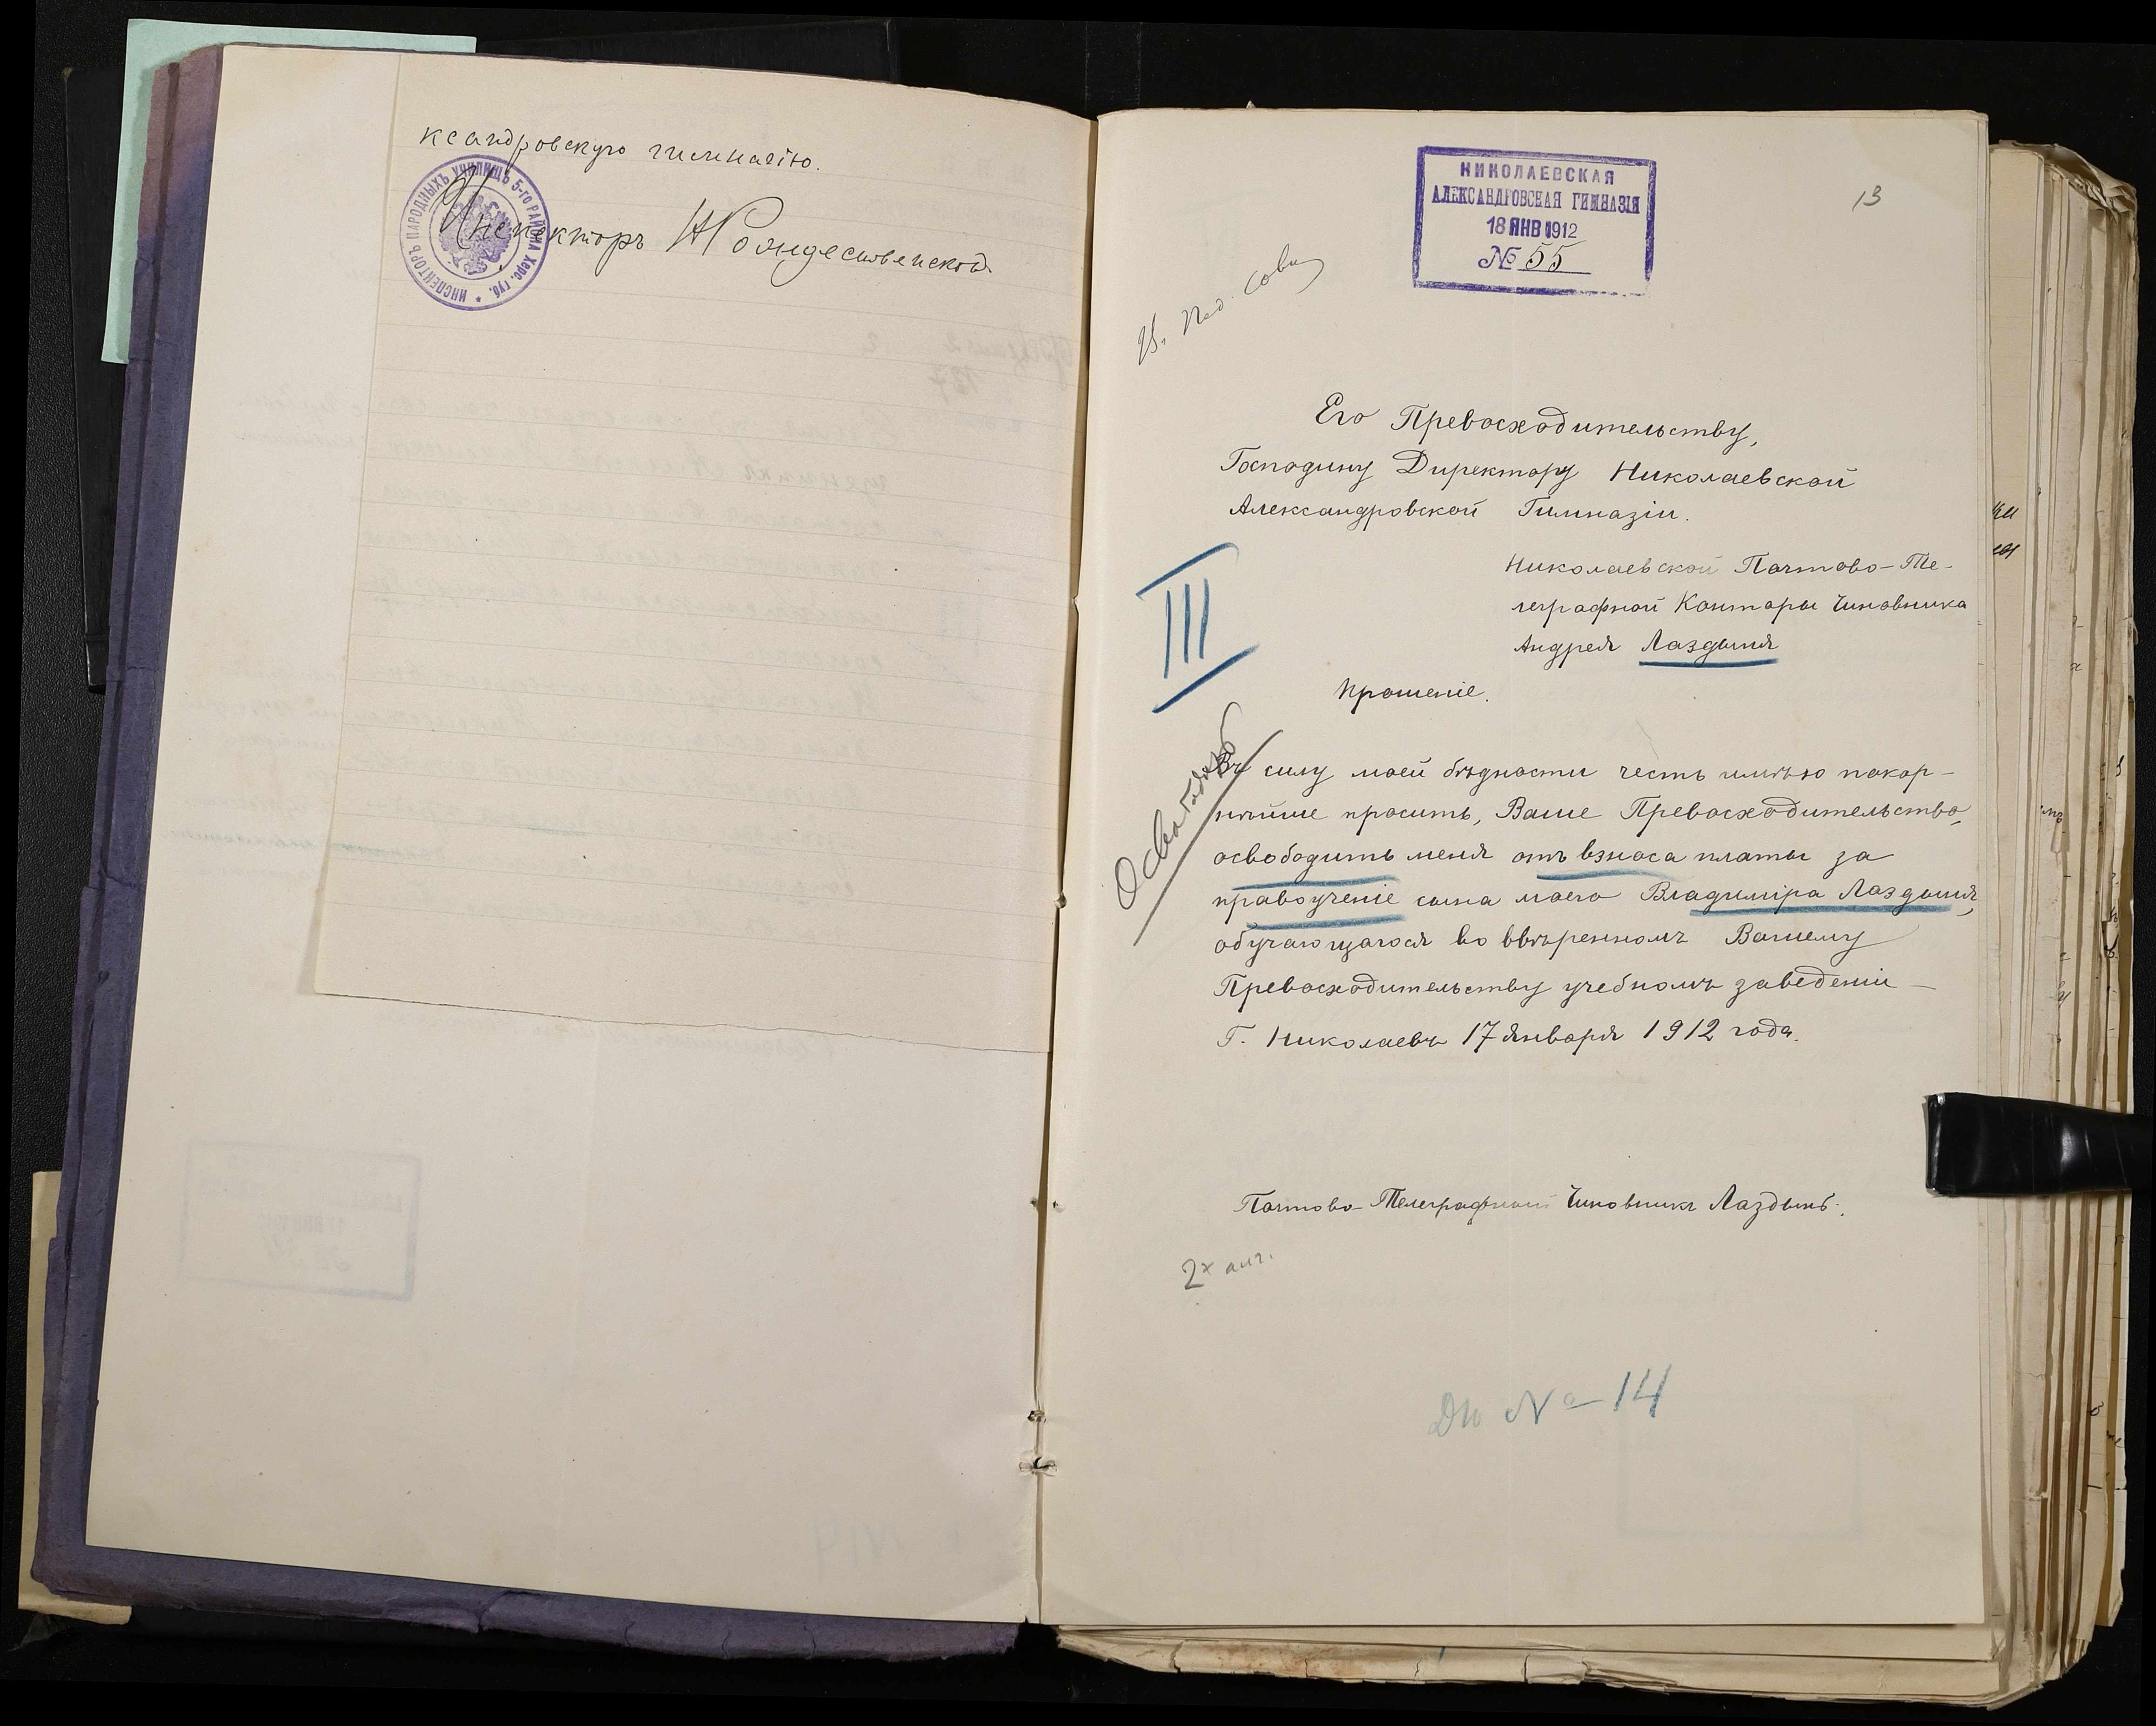 ксандровскую гимназію.
Инспекторъ Н Рождественскій
ИНСПЕКТОРЪ НАРОДНЫХЪ УЧИЛИЩЪ 5-ГО РАЙОНА Херс. губ. *
НИКОЛАЕВСКАЯ
АЛЕКСАНДРОВСКАЯ ГИМНАЗІЯ
18 ЯНВ 1912
№ 55
13
Пед. Сов.
Его Превосходительству,
Господину Директору Николаевской
Александровской Гимназіи.
Николаевской Почтово-Те-
леграфной Конторы Чиновника
Андрея Лаздыня
III
Прошеніе.
Освободить
Въ силу моей бѣдности честь имѣю покор-
нѣйше просить, Ваше Превосходительство,
освободить меня отъ взноса платы за
правоученіе сына моего Владиміра Лаздыня,
обучающагося во ввѣренномъ Вашему
Превосходительству учебномъ заведеніи –
Г. Николаевъ 17 Января 1912 года.
Почтово-Телеграфный Чиновникъ Лаздынь.
№ 14